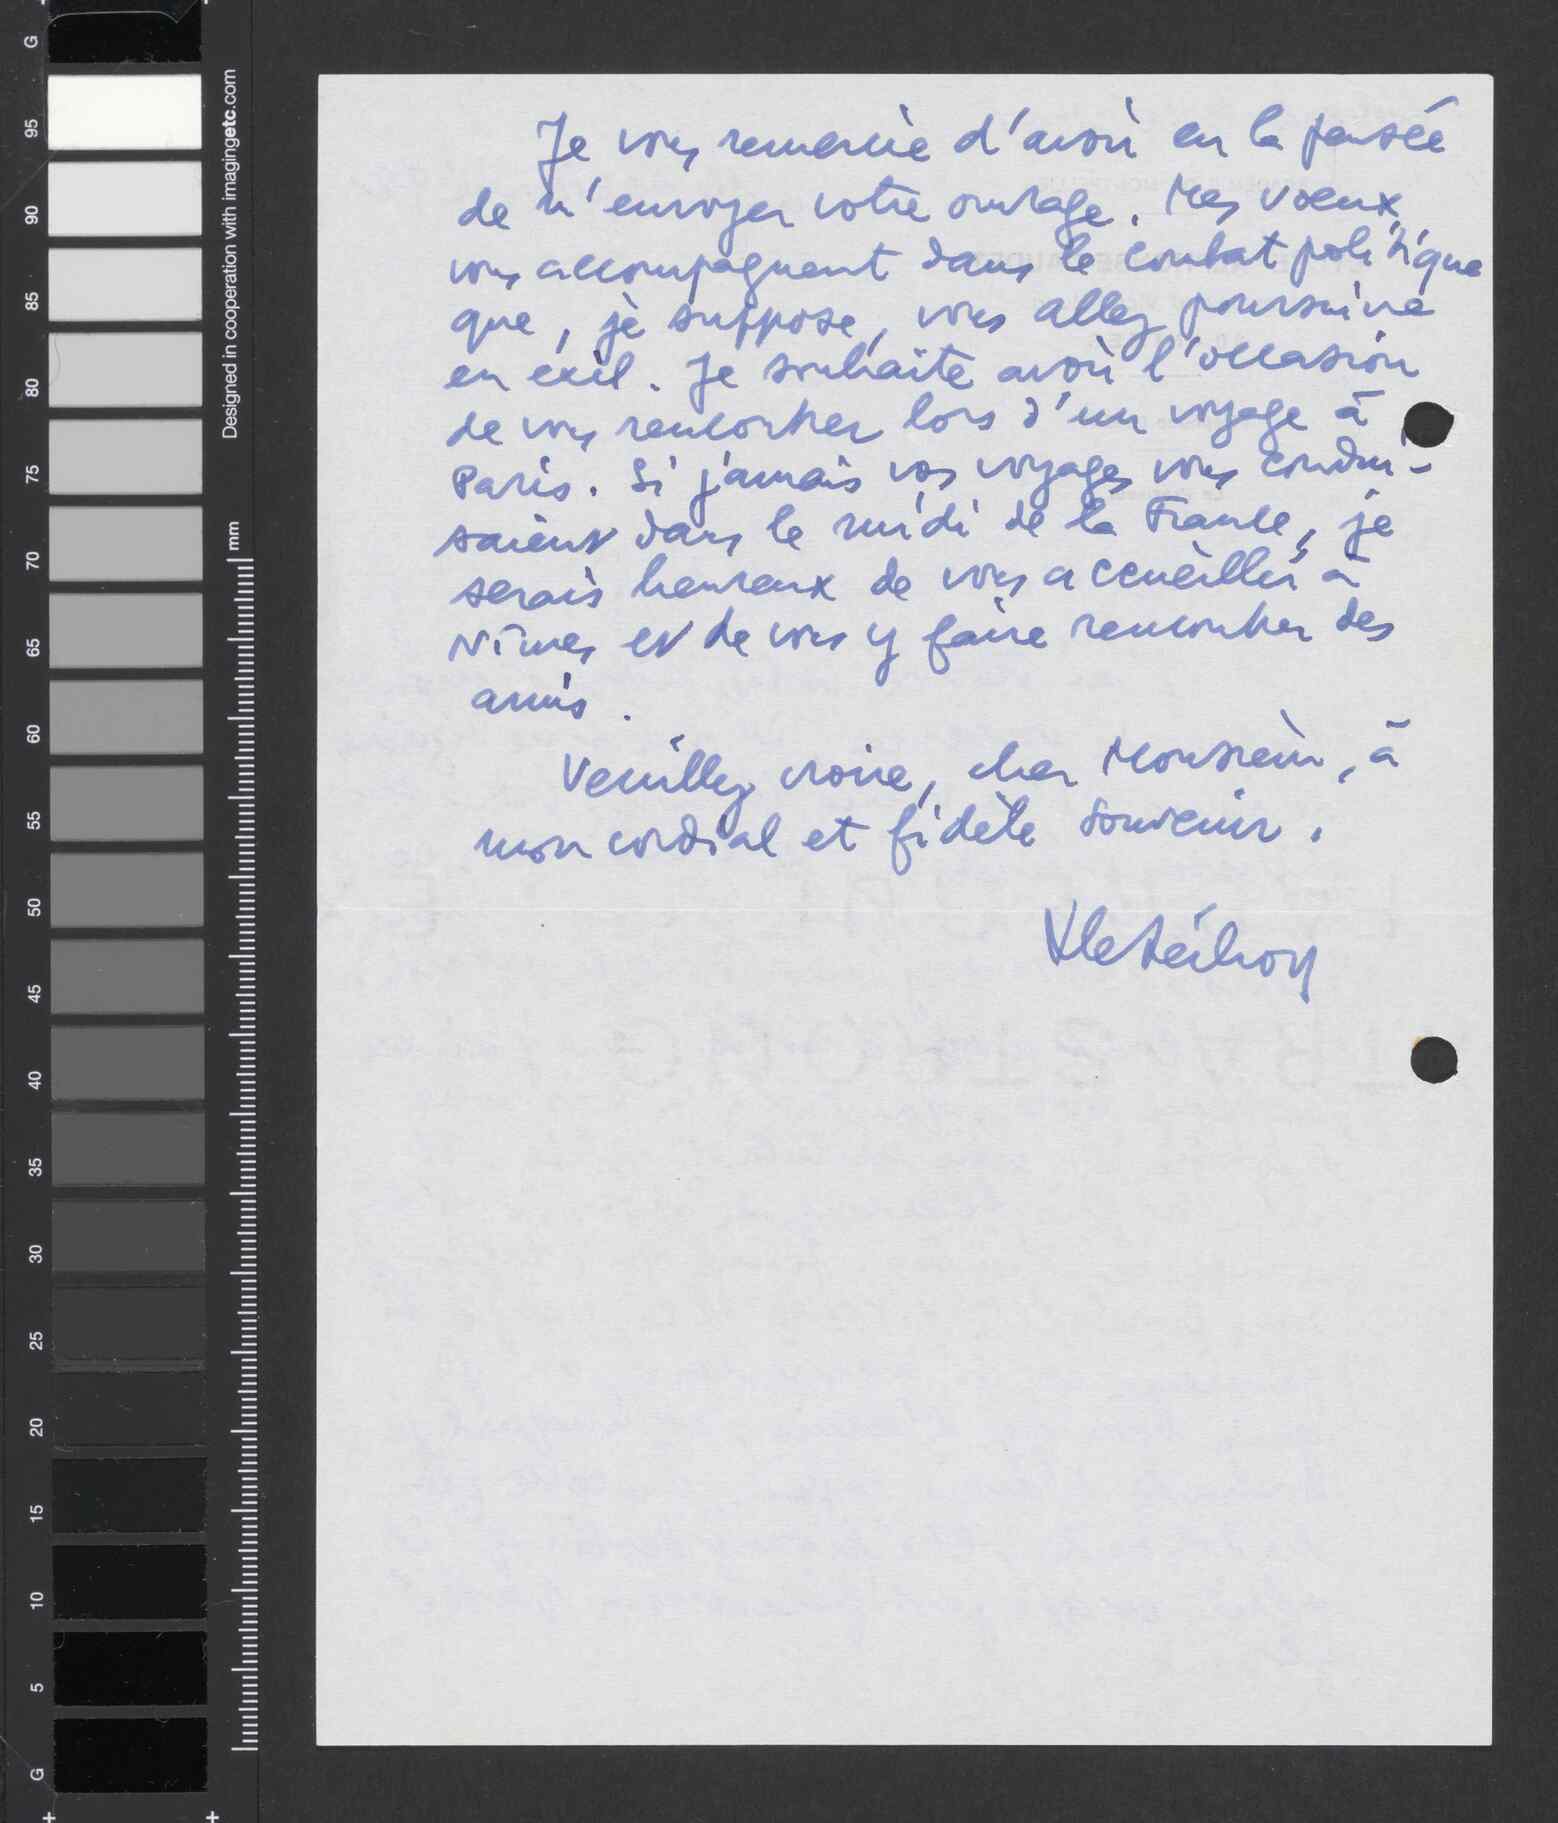 G
95
90
85
80
75
70
65
60
55
50
45
40
35
30
25
20
15
10
5
G
Designed in cooperation with imagingetc.com
mm
Je vous remercie d'avoir eu la pensée
de m'envoyer votre ouvrage. Mes voeux
vous accompagnent dans le combat politique
que, je suppose, vous allez poursuivre
en exil. Je souhaite avoir l'occasion
de vous rencontrer lors d'un voyage à
Paris. Si jamais vos voyages vous condui-
saient dans le midi de la France, je
serais heureux de vous accueillir à
Nîmes et de vous y faire rencontrer des
amis.
Veuillez croire, cher Monsieur, à
mon cordial et fidèle souvenir.